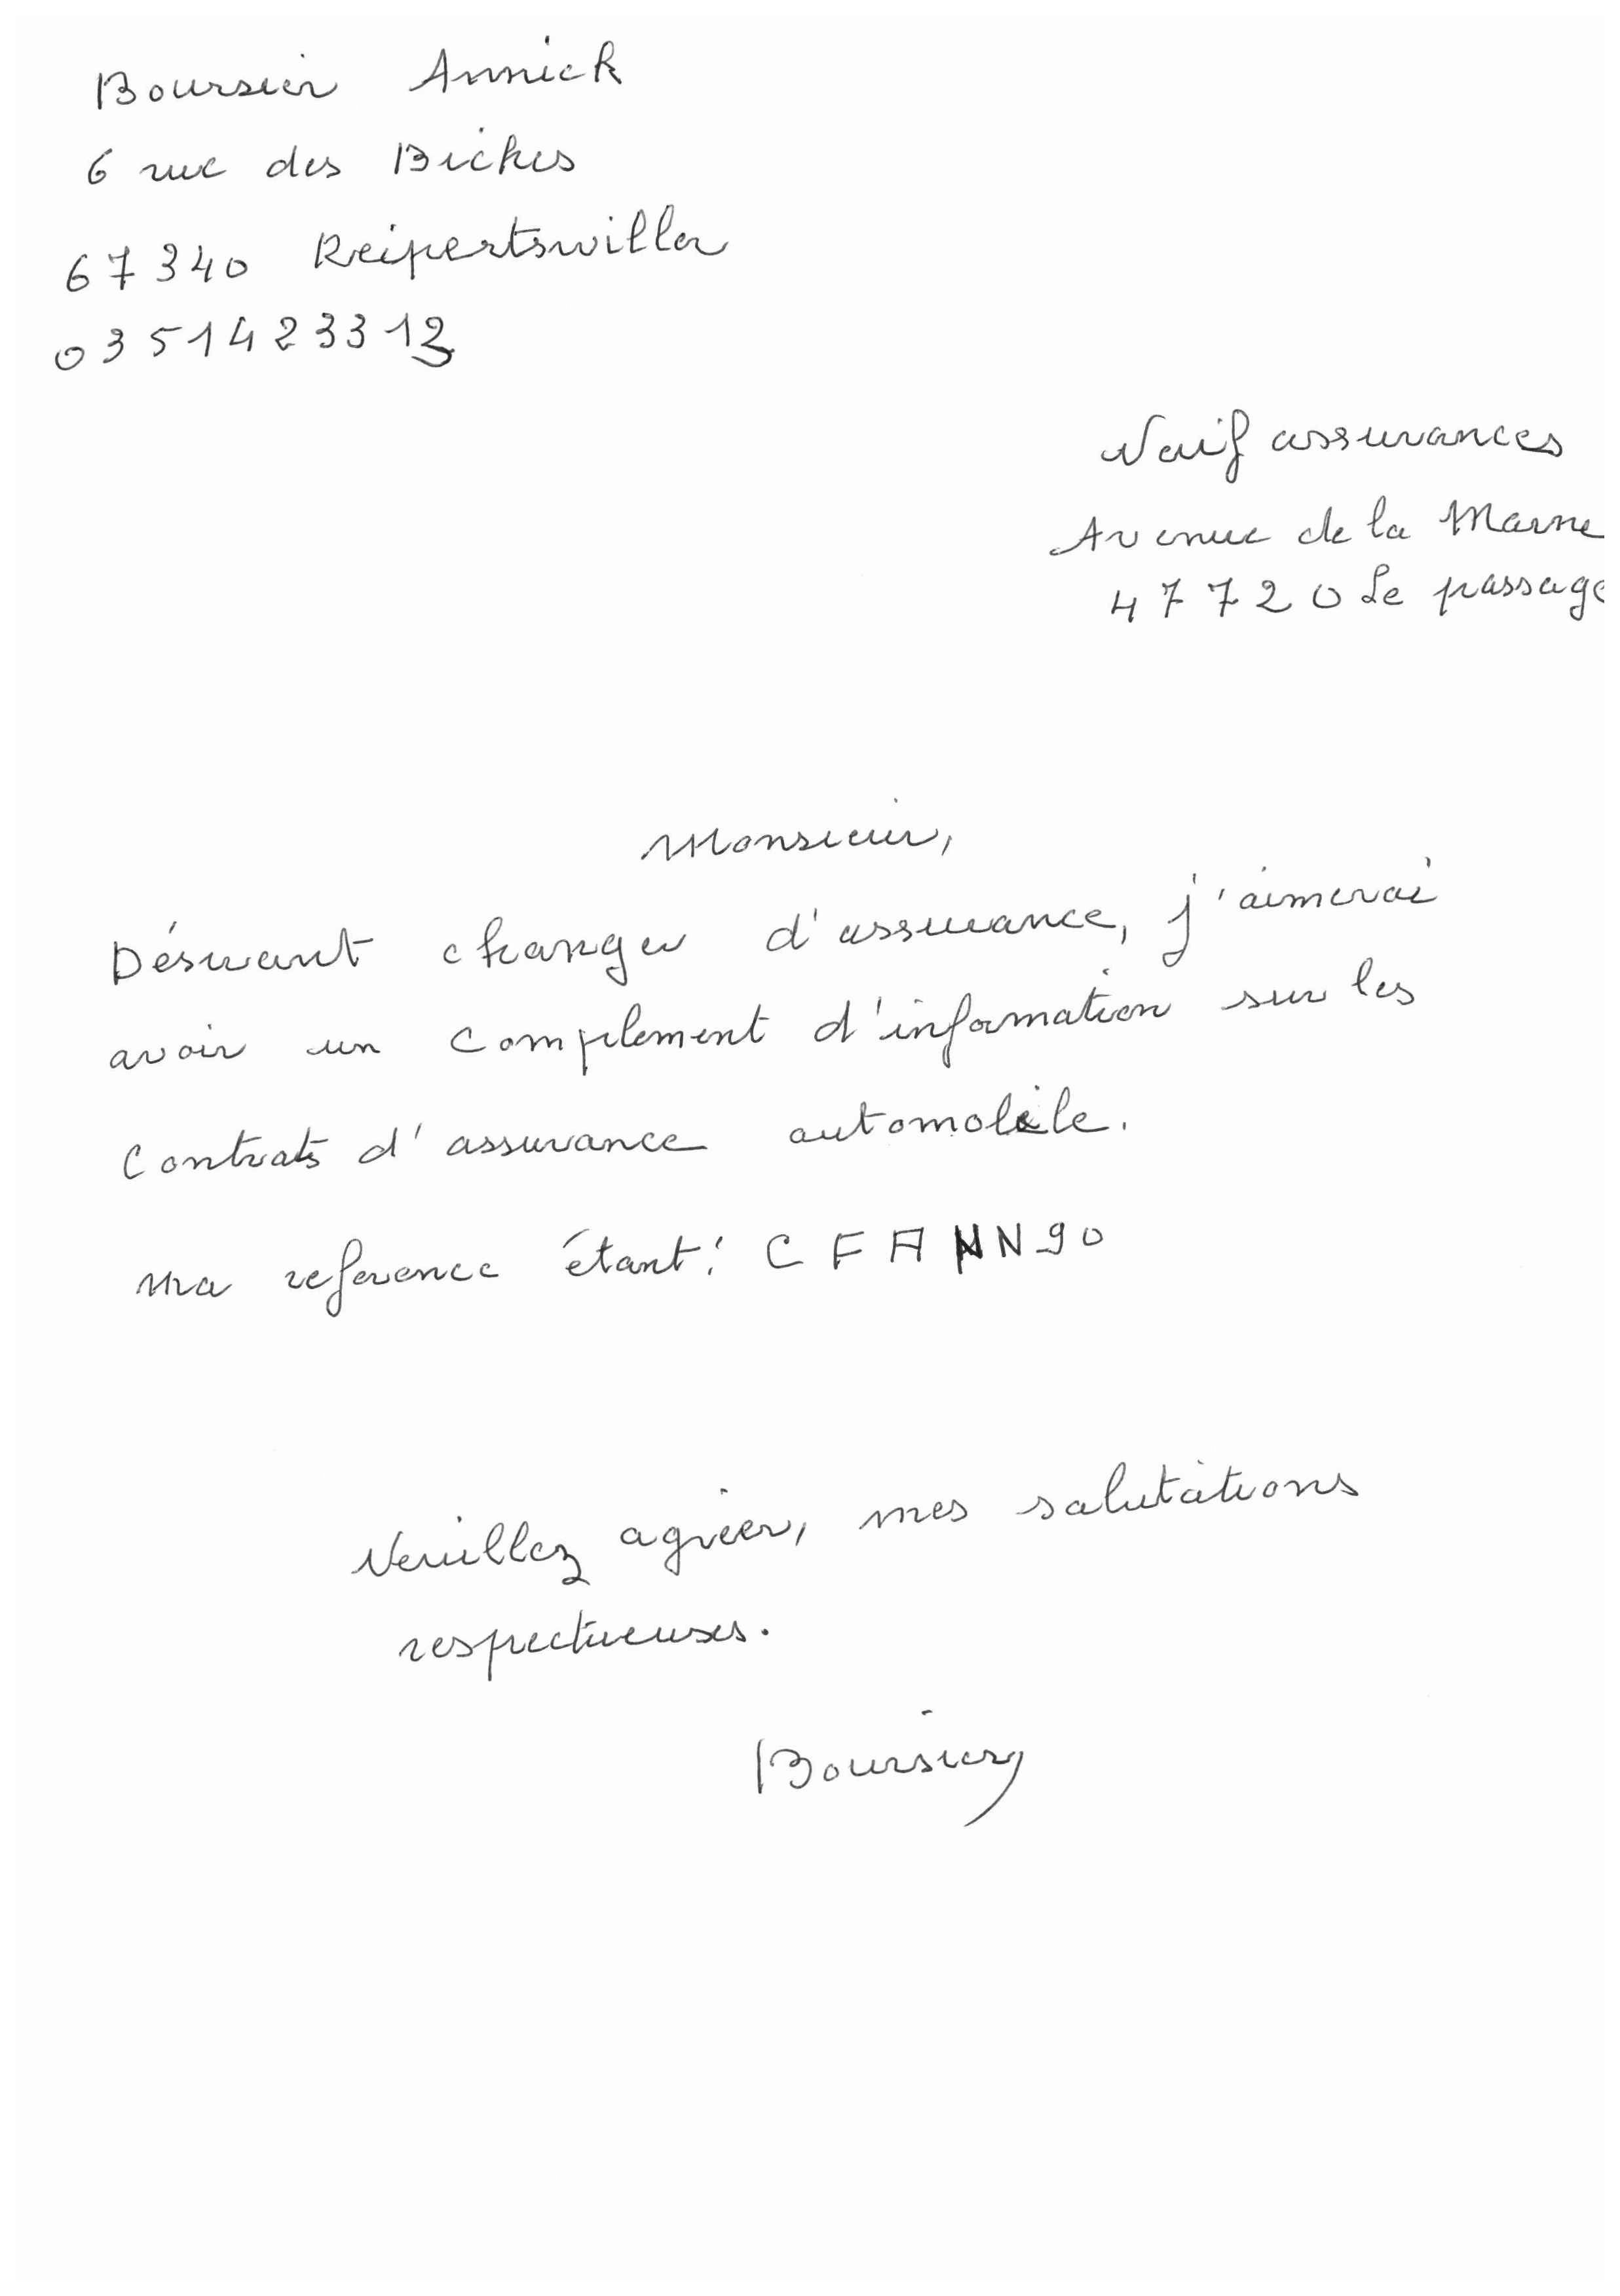 Boursier Annick
6 rue des Biches
67340 Reipertswiller
0351423312
Naif assurances
Avenue de la Marne
47720 Le passage
Monsieur,
Désirant changer d'assurance, j'aimerai
avoir un complement d'information sur les
contrats d'assurance automobile.
Ma reference étant : CFANN90
Veuillez agréer, mes salutations
respectueuses.
Boursier